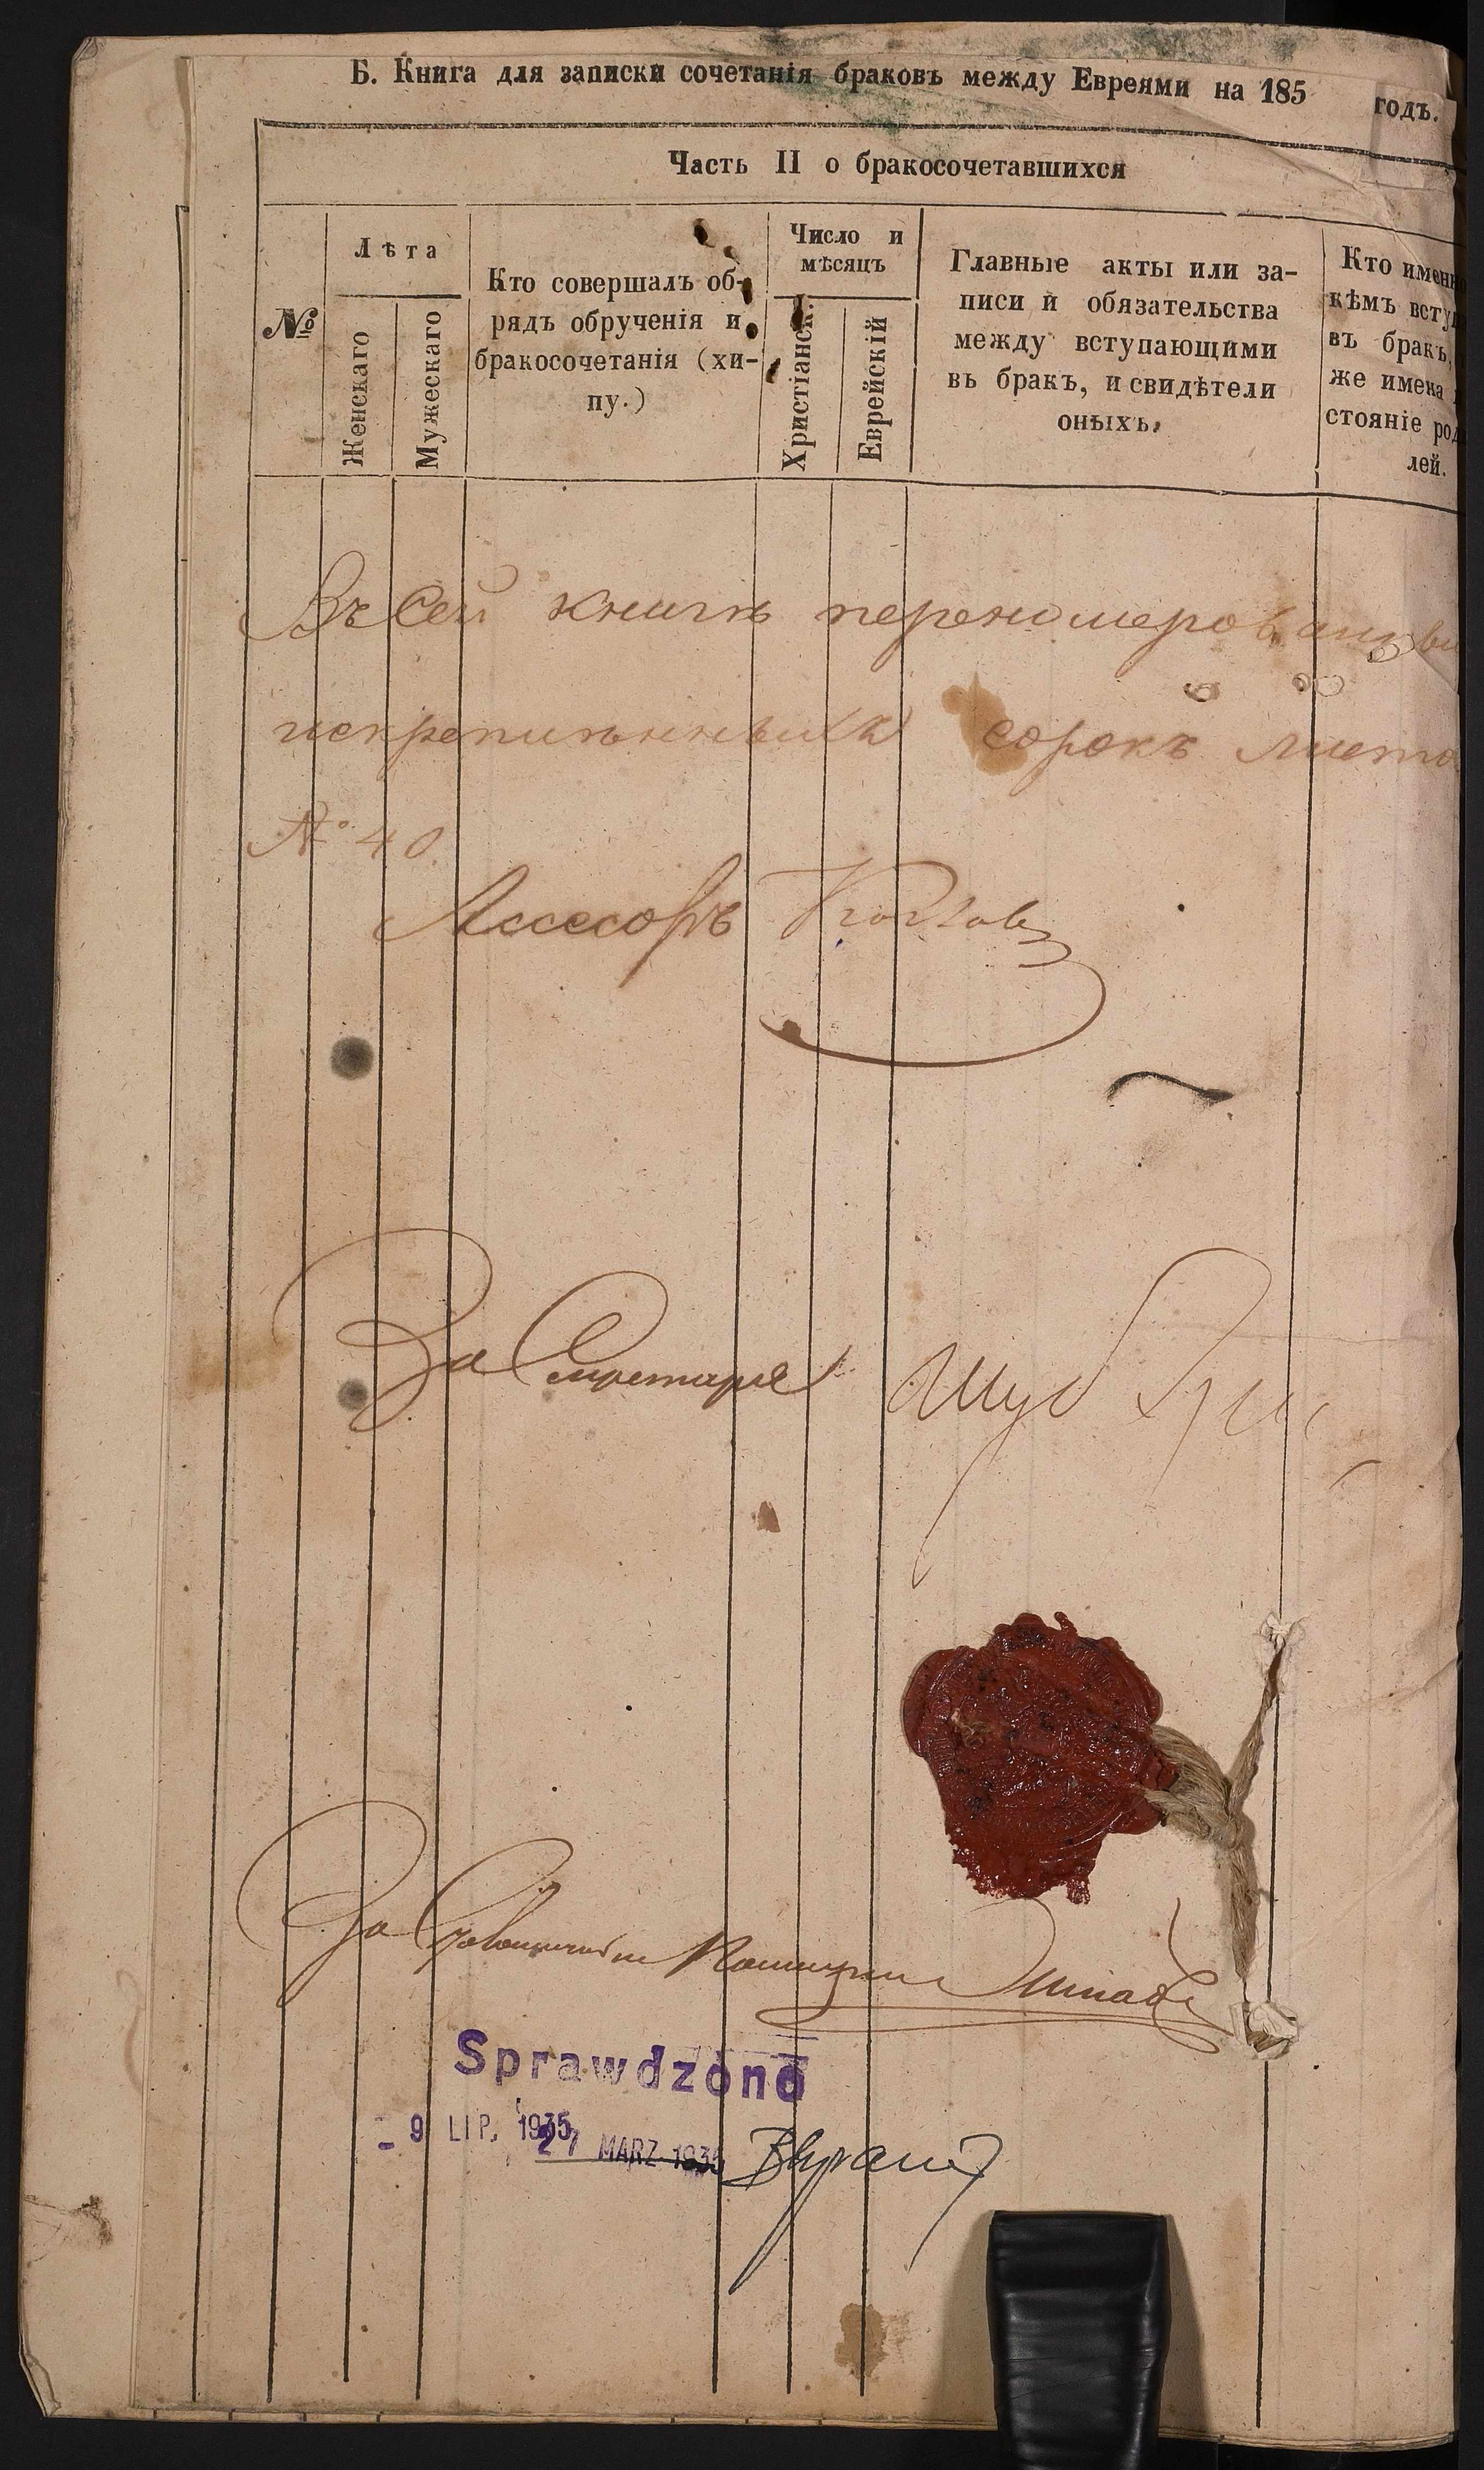 Б. Книга для записки сочетанія браковъ между Евреями на 185 годъ.
Часть II о бракосочетавшихся
№
Лѣта
Женскаго
Мужескаго
Кто совершалъ об-
рядъ обрученія и
бракосочетанія (хи-
пу.)
Число и
мѣсяцъ
Христіанск.
Еврейскій
Главные акты или за-
писи и обязательства
между вступающими
въ бракъ, и свидѣтели
оныхъ.
Кто именн
кѣмъ всту
въ бракъ,
же имена
стояніе род
лей.
Въ сей книгѣ перенумерованны
искрепленныхъ сорокъ листо
№ 40
Ассесоръ
За
За
Sprawdzono
- 9 LIP. 1935
27 MARZ 1935